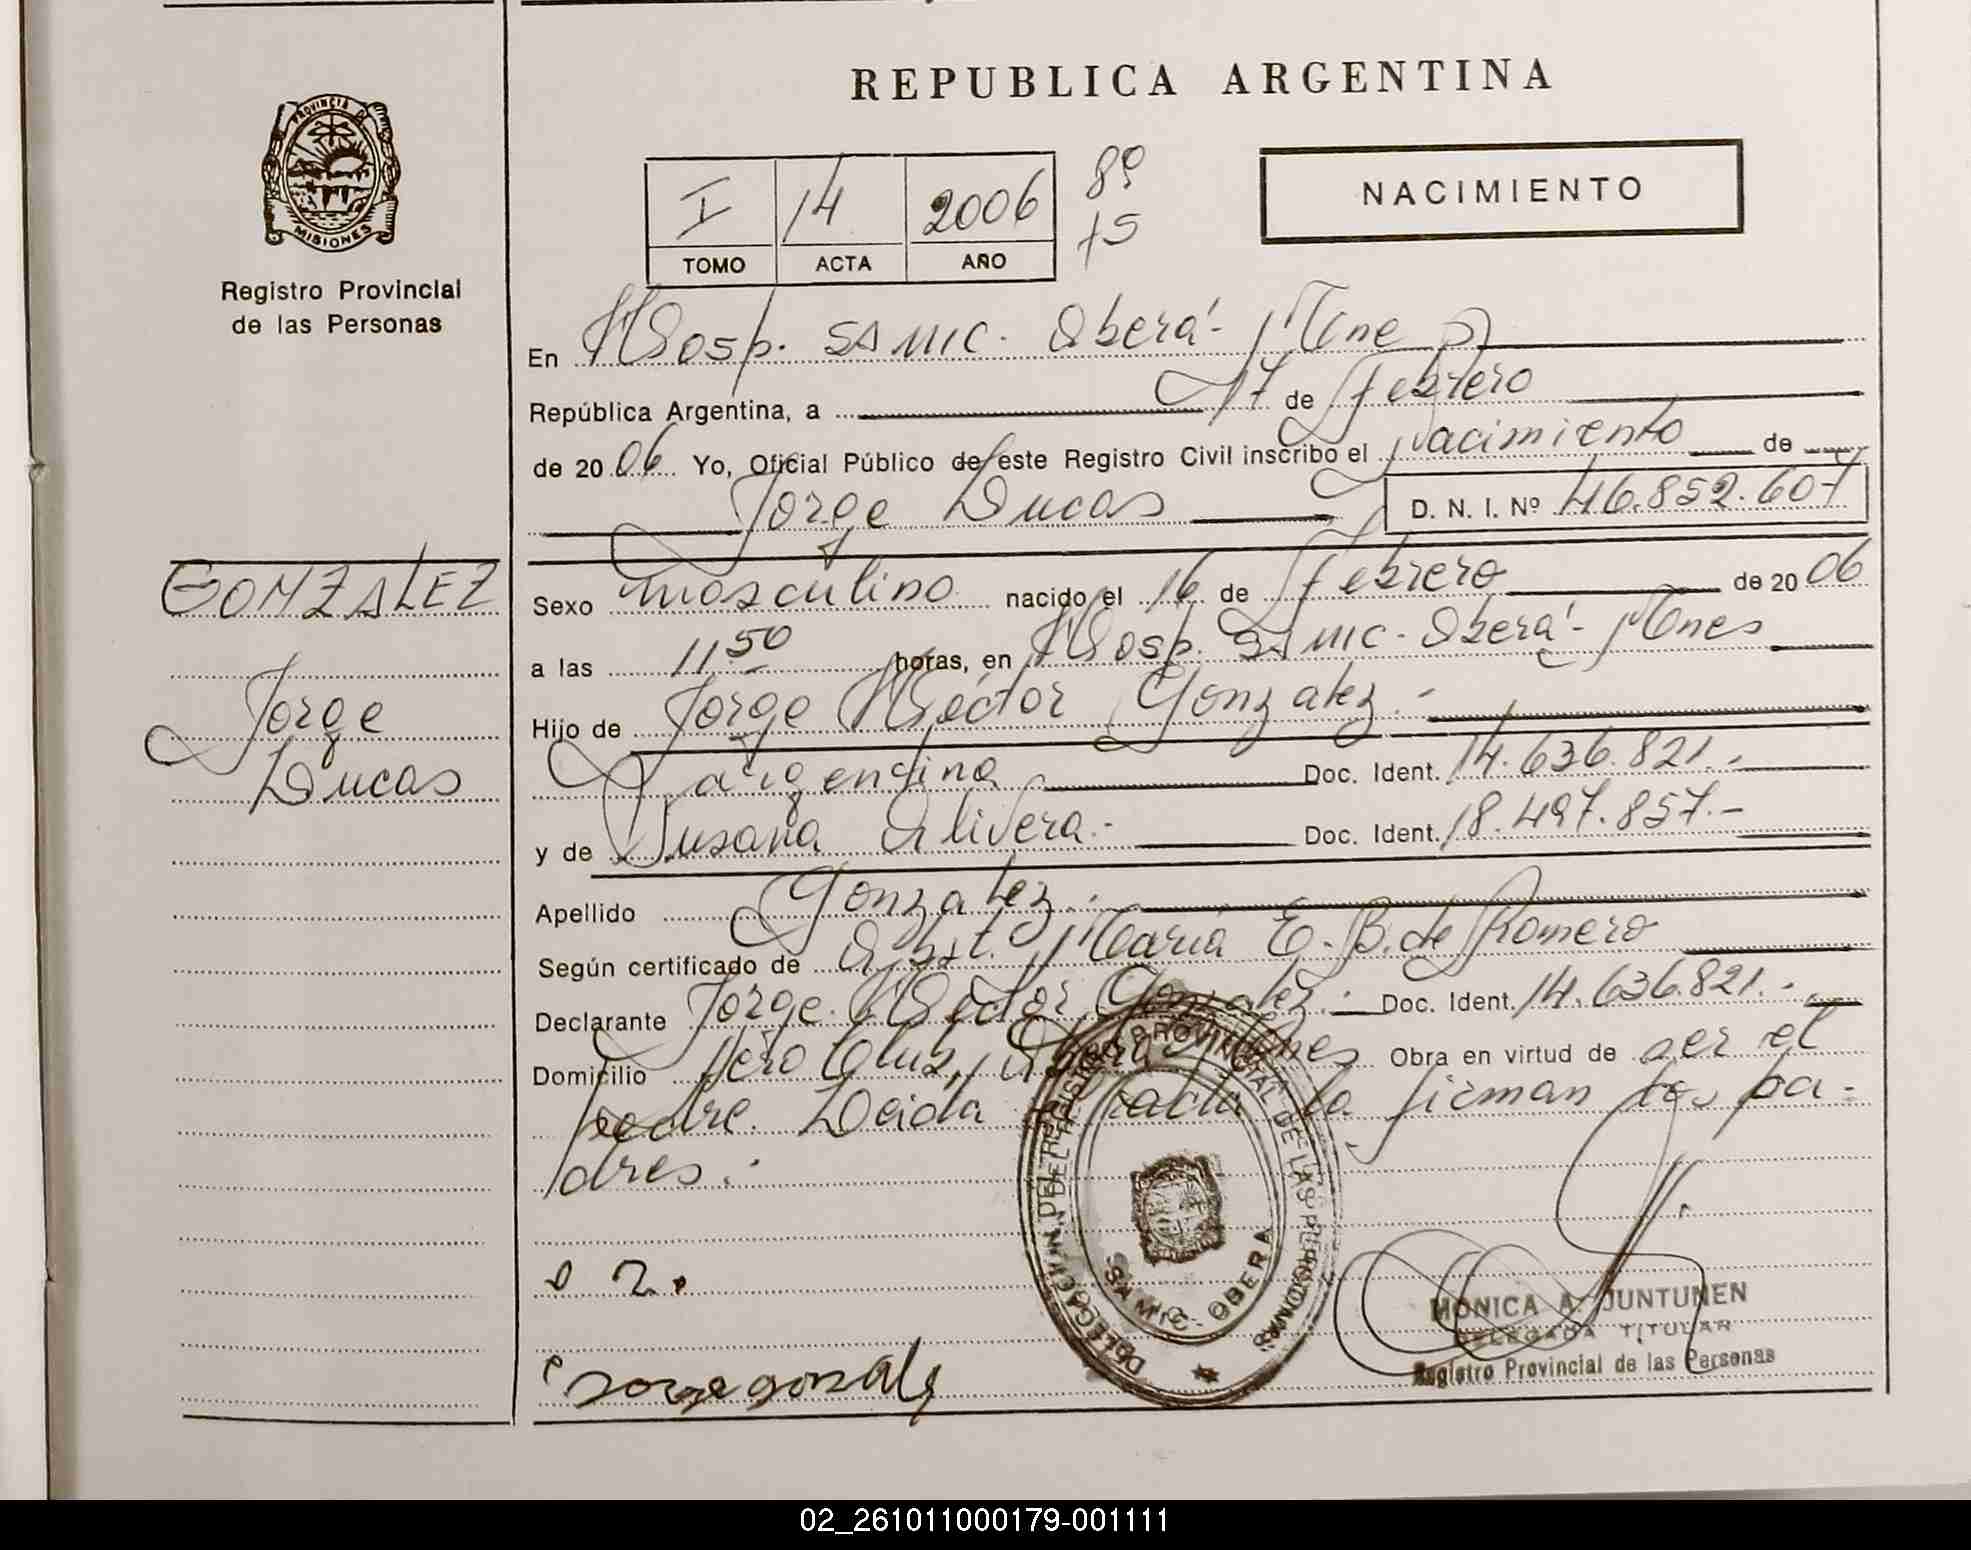 REPUBLICA ARGENTINA
PROVINCIA DE MISIONES
Registro Provincial
de las Personas
NACIMIENTO
I 14 2006
TOMO ACTA AÑO
En Hosp. SAMIC. Oberá - Mnes
República Argentina, a 17 de febrero
de 2006 Yo, Oficial Público de este Registro Civil inscribo el nacimiento de
Jorge Lucas D. N. I. Nº 46.852.607
GONZALEZ
Jorge
Lucas
Sexo masculino nacido el 16 de febrero de 2006
a las 11 50 horas, en Hosp. SAMIC - Oberá - Mnes
Hijo de Jorge Héctor Gonzalez.-
argentino Doc. Ident. 14.636.821.-
y de Susana Olivera.- Doc. Ident. 18.497.857.-
Apellido Gonzalez.-
Según certificado de Obst. María E. B. de Romero
Declarante Jorge Héctor Gonzalez.- Doc. Ident. 14.636.821.-
Domicilio Aero Club, Oberá Mnes Obra en virtud de ser el
padre. Leida el acta la firman los pa=
dres.-
DELEGACION DEL REGISTRO PROVINCIAL DE LAS PERSONAS
SAMIC - OBERA
MONICA A. JUNTUNEN
DELEGADA TITULAR
Registro Provincial de las Personas
02_261011000179-001111